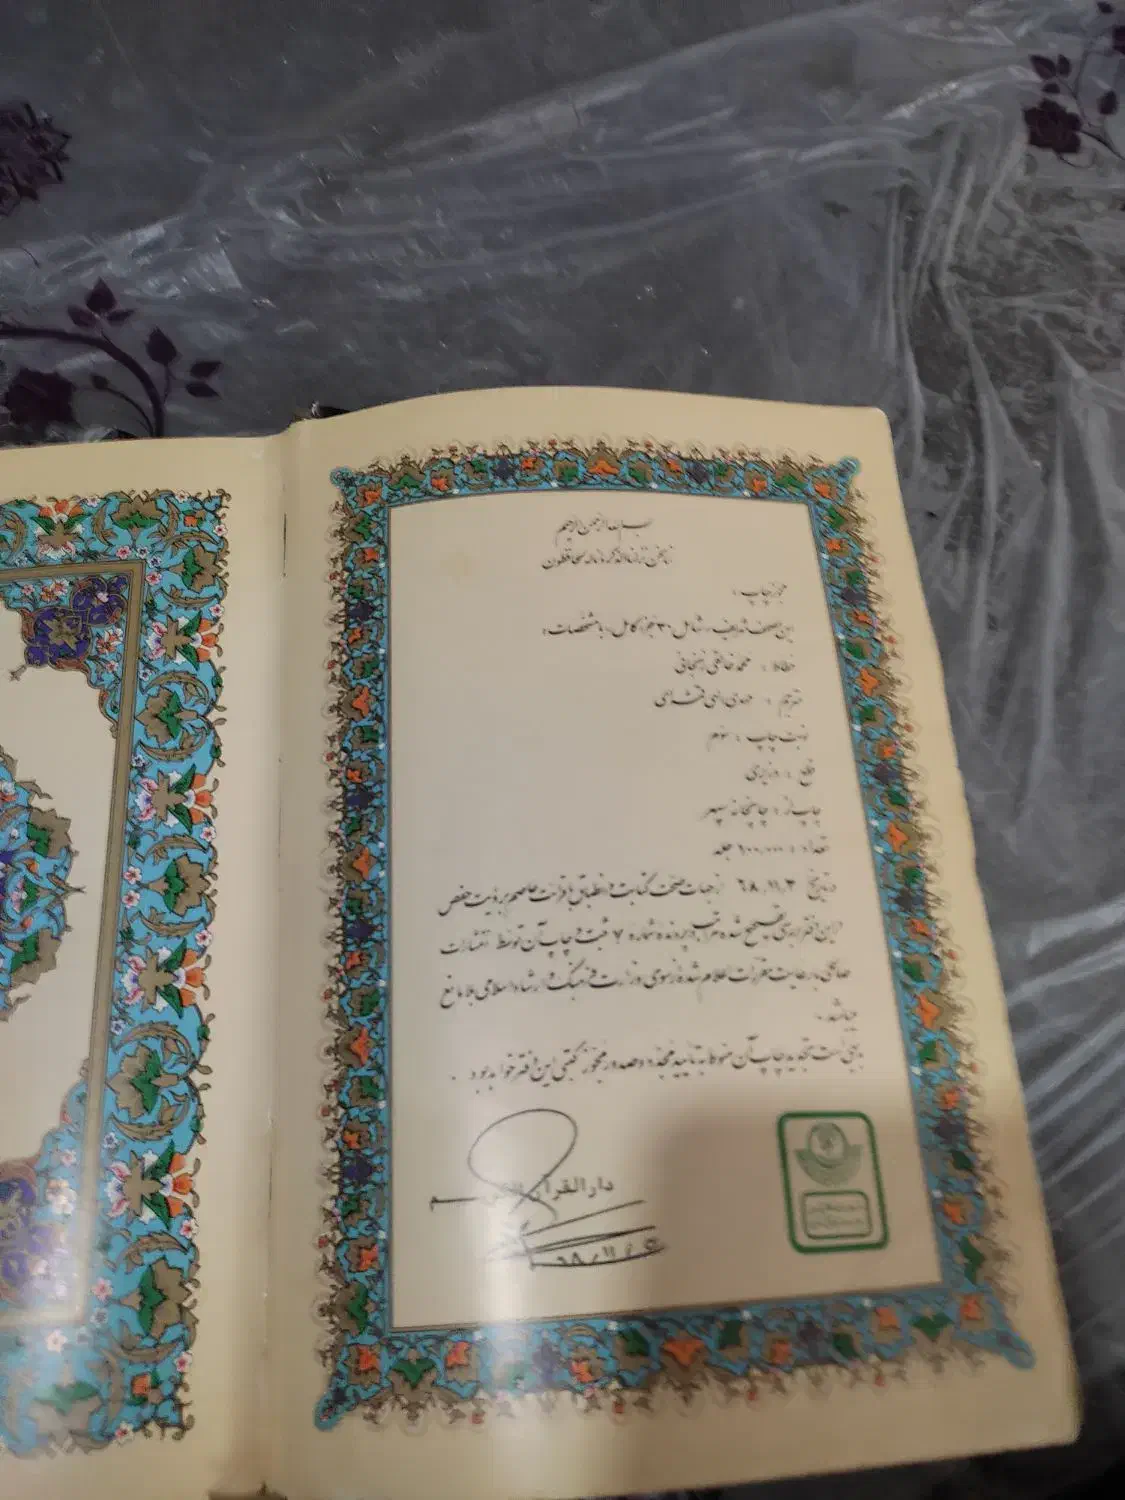 بسم الله الرحمن الرحیم
انا نحن نزلنا الذکر و انا له لحافظون
مجوز چاپ :
این مصحف شریف شامل ۳۰ جزء کامل با مشخصات :
خطاط :
مترجم : مهدی الهی قمشه‌ای
نوبت چاپ : سوم
قطع : وزیری
چاپ از : چاپخانه سپهر
تعداد : ۱۰۰,۰۰۰ جلد
در تاریخ ۶۸/۱۱/۳ از جهات صحت کتابت و انطباق با قرائت عاصم بروایت حفص
در این دفتر بررسی و تصحیح شده مراتب در پرونده شماره ۷ ثبت و چاپ آن توسط انتشارات
با رعایت مقررات اعلام شده از سوی وزارت فرهنگ و ارشاد اسلامی بلامانع
میباشد .
بدیهی است تجدید چاپ آن منوط به تأیید مجدد و صدور مجوز کتبی این دفتر خواهد بود .
دارالقرآن
۶۸/۱۱/۵